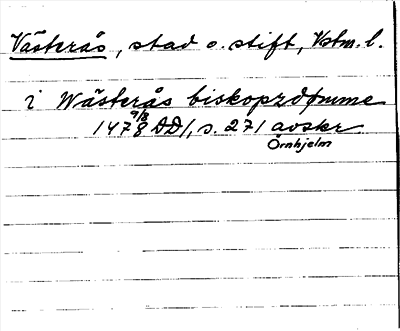 Västerås, stad o. stift, Vstm. l.
i Wästerås biskopzdømme
1478 9/8 DD1, s. 271 avskr
Örnhjelm